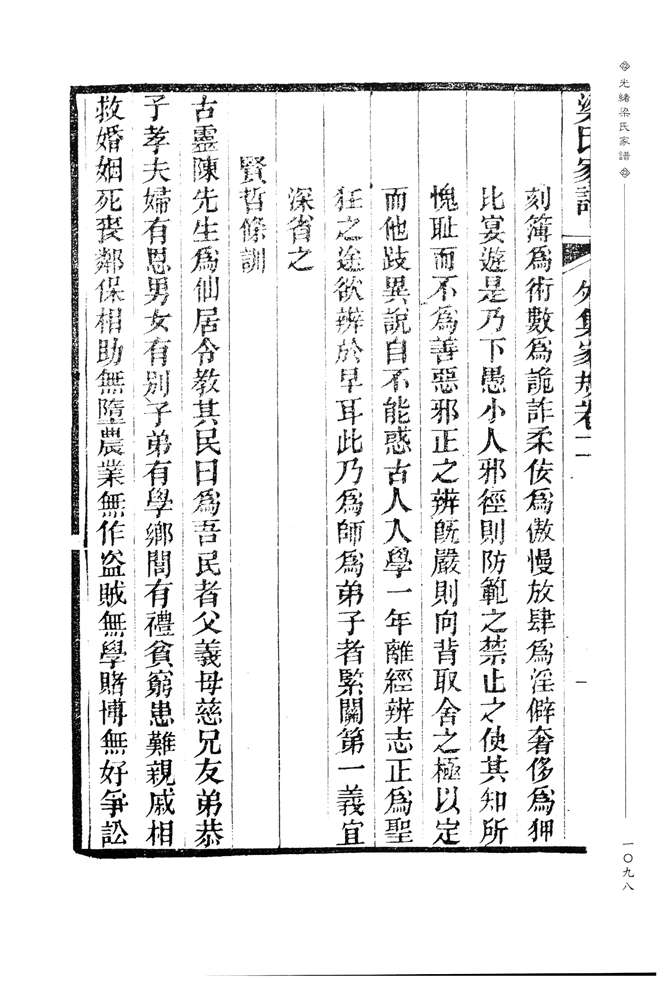 光緒梁氏家譜
一〇九八
梁氏家譜 外集家規卷二
刻簿爲術數爲詭詐柔佞爲傲慢放肆爲淫僻奢侈爲狎
比宴遊是乃下愚小人邪徑則防範之禁止之使其知所
愧耻而不爲善惡邪正之辨旣嚴則向背取舍之極以定
而他歧異說自不能惑古人入學一年離經辨志正爲聖
狂之途欲辨於早耳此乃爲師爲弟子者緊關第一義宜
深省之
賢哲條訓
古靈陳先生爲仙居令教其民曰爲吾民者父義母慈兄友弟恭
子孝夫婦有恩男女有別子弟有學鄉閭有禮貧窮患難親戚相
救婚姻死喪鄰保相助無墮農業無作盜賊無學賭博無好爭訟